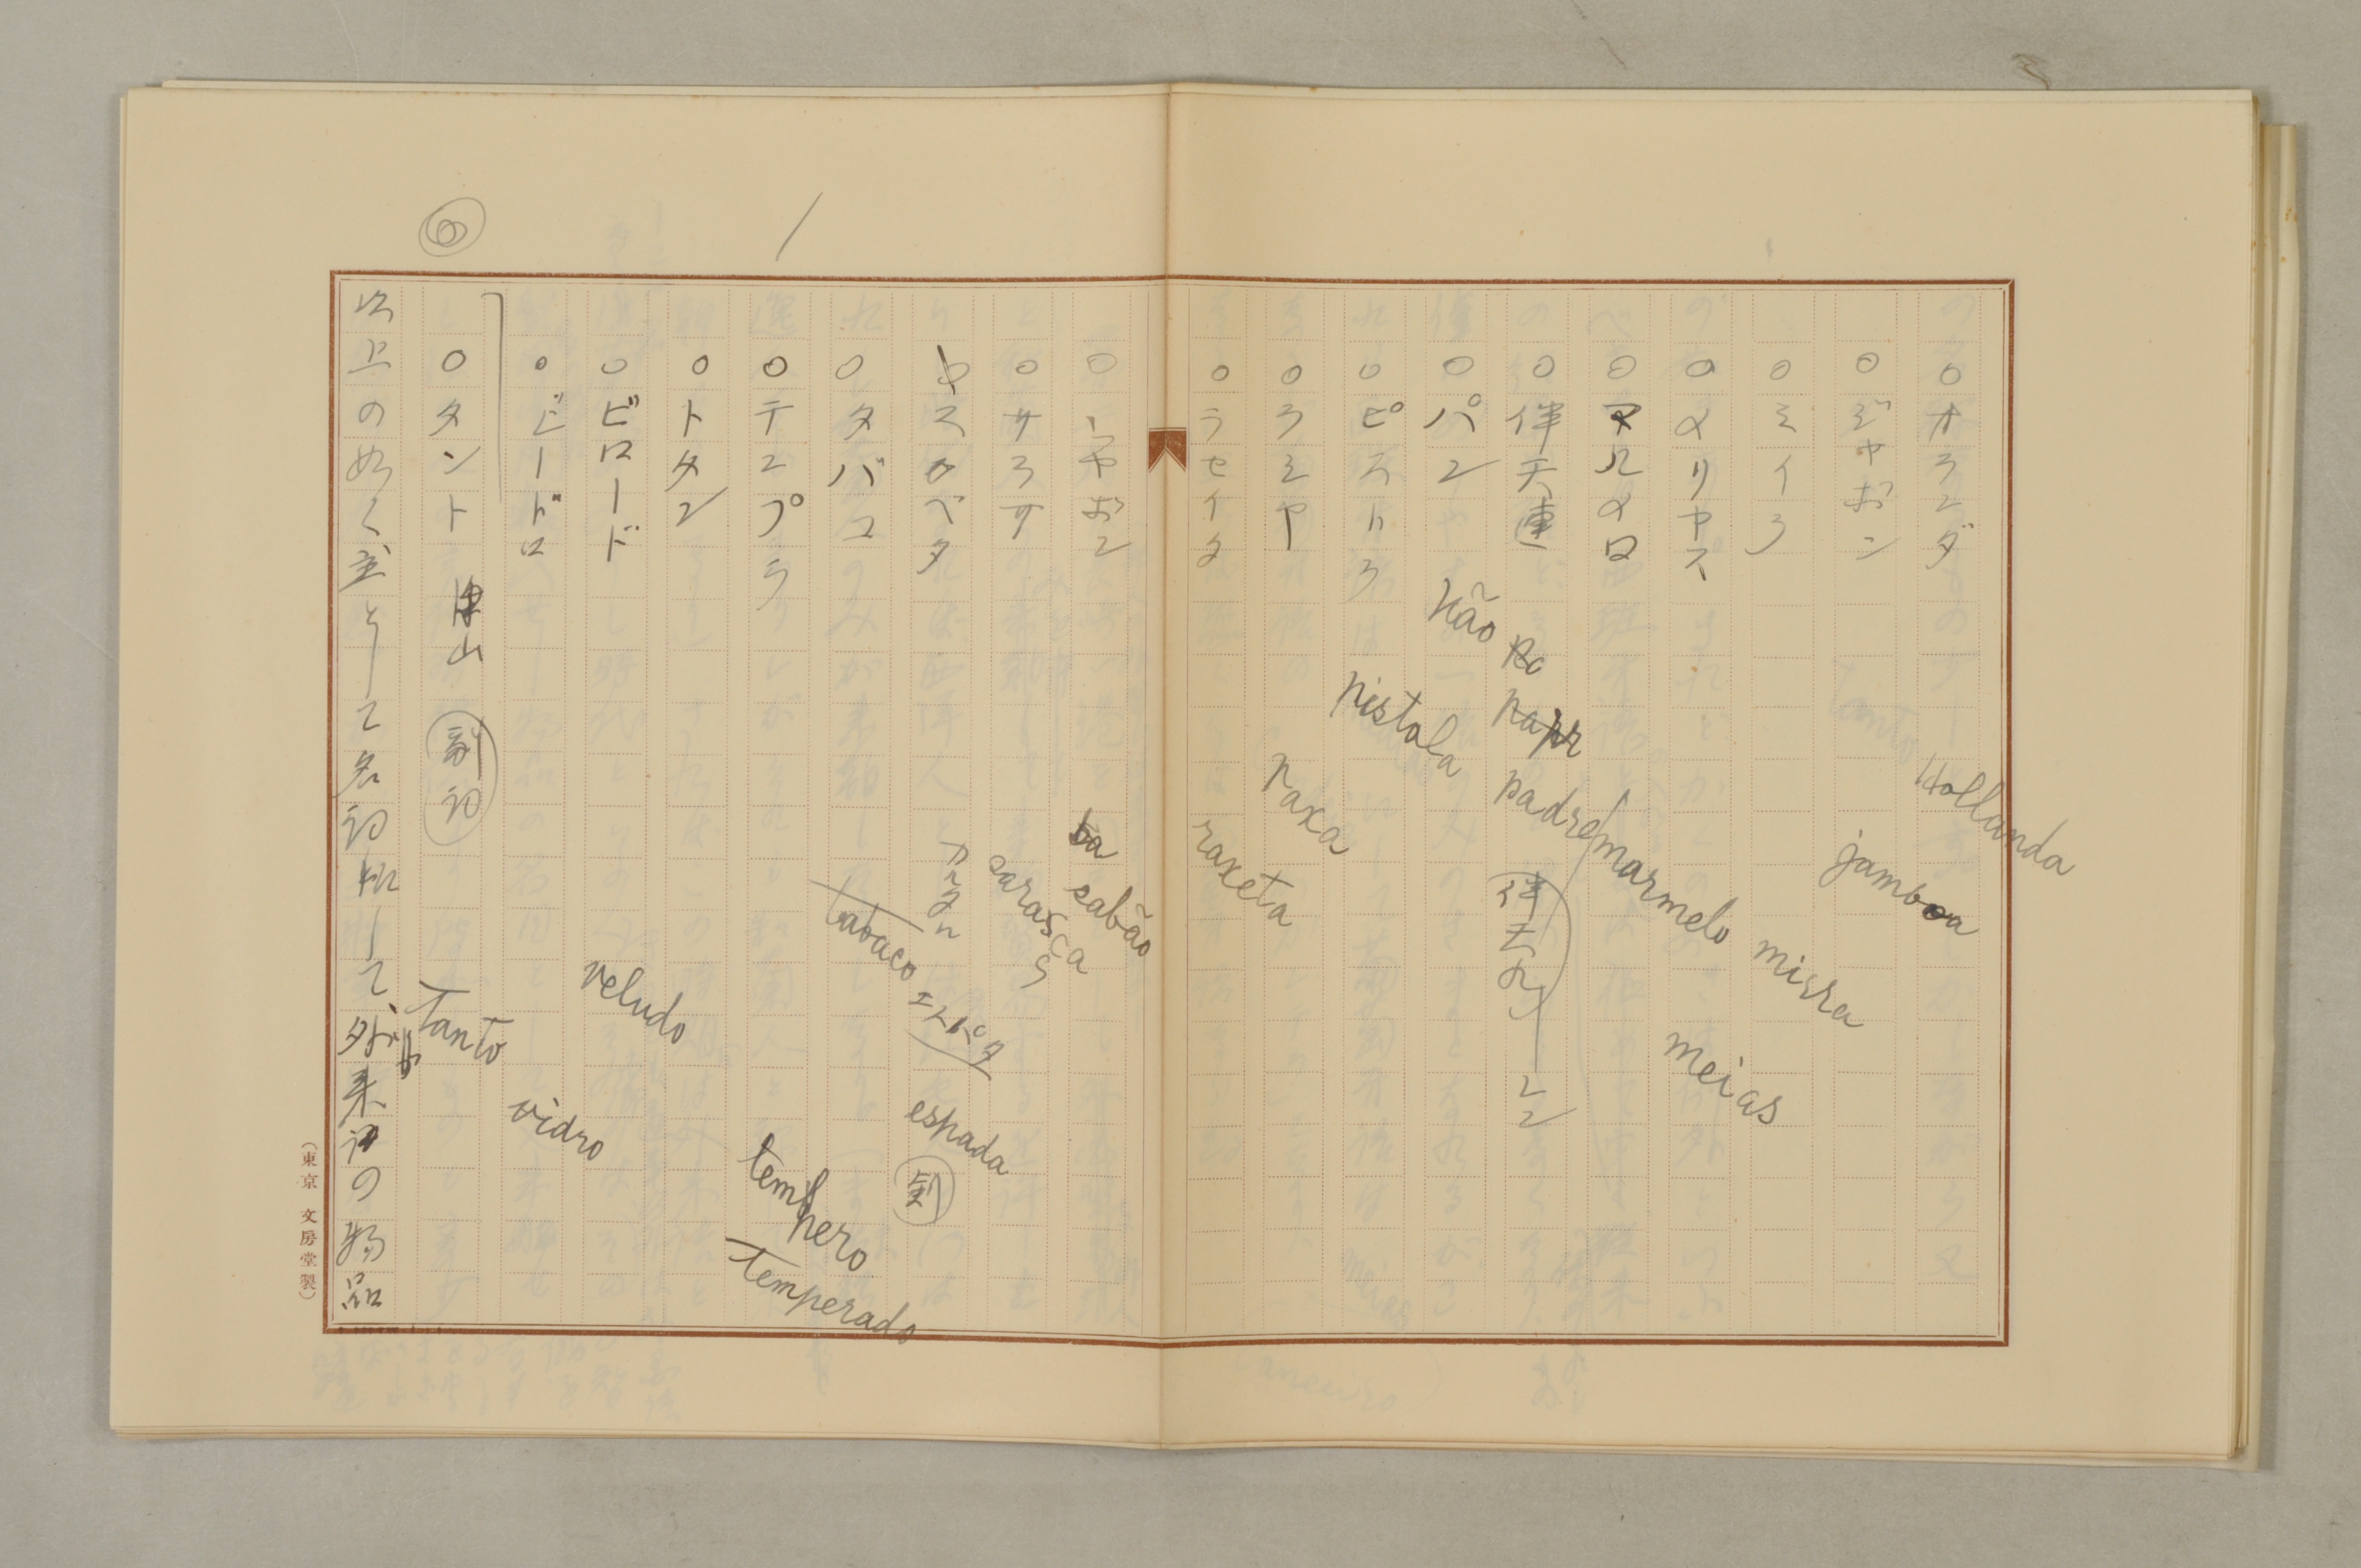 ○オランダ Hollanda
○ジャボン jamboa
○ミイラ mirra
○メリヤス meias
○マルメロ marmelo
○伴天連 padre 伴天連
○パン pão
○ピストラ pistola
○ラシャ raxa
○ラセイタ raxeta
○シャボン sabão
○サラサ sarasça
○スカベタ エスパタ espada 剣
○タバコ tabaco
○テンプラ tempero temperado
○トタン
○ビロード veludo
○ビードロ vidro
○タント 沢山 副詞 tanto
以上の如く主として名詞にして、外来の物品
（東京 文房堂製）